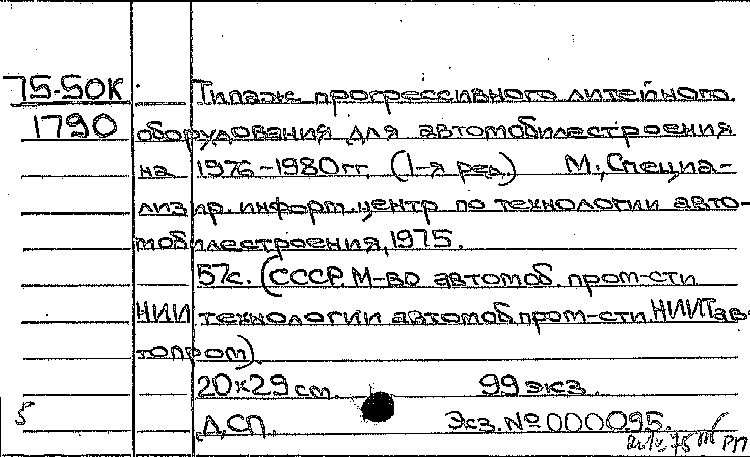 75-50К Типаж прогрессивного литейного
1790 оборудования для автомобилестроения
на 1976-1980гг. (1-я ред.) М., Специа-
лизир. информ. центр по технологии авто-
мобилестроения, 1975.
57с. (СССР. М-во автомоб. пром-сти
НИИ технологии автомоб. пром-сти. НИИТав-
топром).
20х29 см. 99 экз.
5 Д.СП. Экз. № 000095.
РП